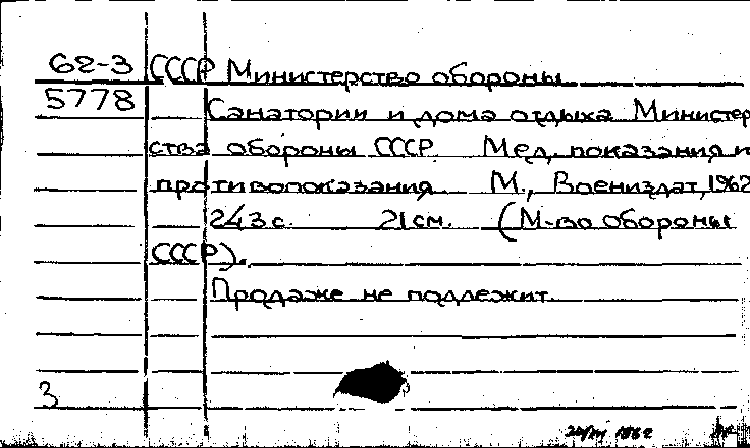 62-3 СССР Министерство обороны
5778 Санатории и дома отдыха Министер
ства обороны СССР. Мед. показания и
противопоказания. М., Воениздат, 1962
243 с. 21 см. (М-во обороны
СССР).
Продаже не подлежит.
3